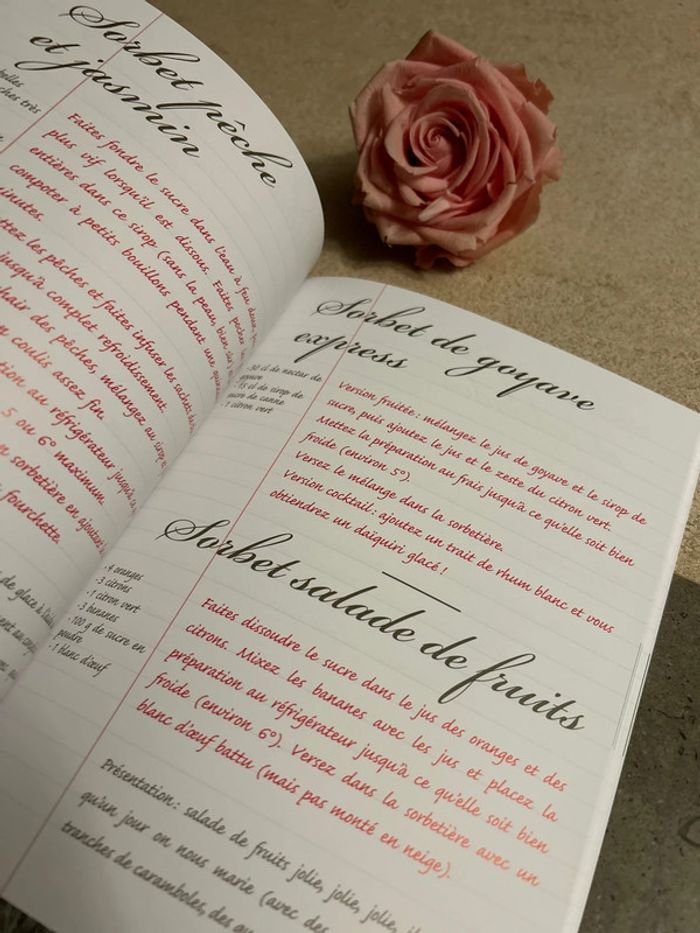 Sorbet pêche
et jasmin
ches très
Faites fondre le sucre dans l'eau à feu doux,
plus vif lorsqu'il est dissous. Faites pocher
entières dans ce sirop (sans la peau, bien
compoter à petits bouillons pendant une
minutes.
les pêches et faites infuser les sachets
jusqu'à complet refroidissement.
chair des pêches, mélangez au sirop
coulis assez fin.
au réfrigérateur jusqu'à
5 ou 6° maximum.
sorbetière en ajoutant
fourchette.
de glace à
Sorbet de goyave
express
- 50 cl de nectar de
goyave
- 15 cl de sirop de
sucre de canne
- 1 citron vert
Version fruitée : mélangez le jus de goyave et le sirop de
sucre, puis ajoutez le jus et le zeste du citron vert.
Mettez la préparation au frais jusqu'à ce qu'elle soit bien
froide (environ 5°).
Versez le mélange dans la sorbetière.
Version cocktail : ajoutez un trait de rhum blanc et vous
obtiendrez un daïquiri glacé !
Sorbet salade de fruits
- 4 oranges
- 3 citrons
- 1 citron vert
- 3 bananes
- 100 g de sucre en
poudre
- 1 blanc d'œuf
Faites dissoudre le sucre dans le jus des oranges et des
citrons. Mixez les bananes avec les jus et placez la
préparation au réfrigérateur jusqu'à ce qu'elle soit bien
froide (environ 6°). Versez dans la sorbetière avec un
blanc d'œuf battu (mais pas monté en neige).
Présentation : salade de fruits jolie, jolie, jolie,
qu'un jour on nous marie (avec des
tranches de caramboles, des